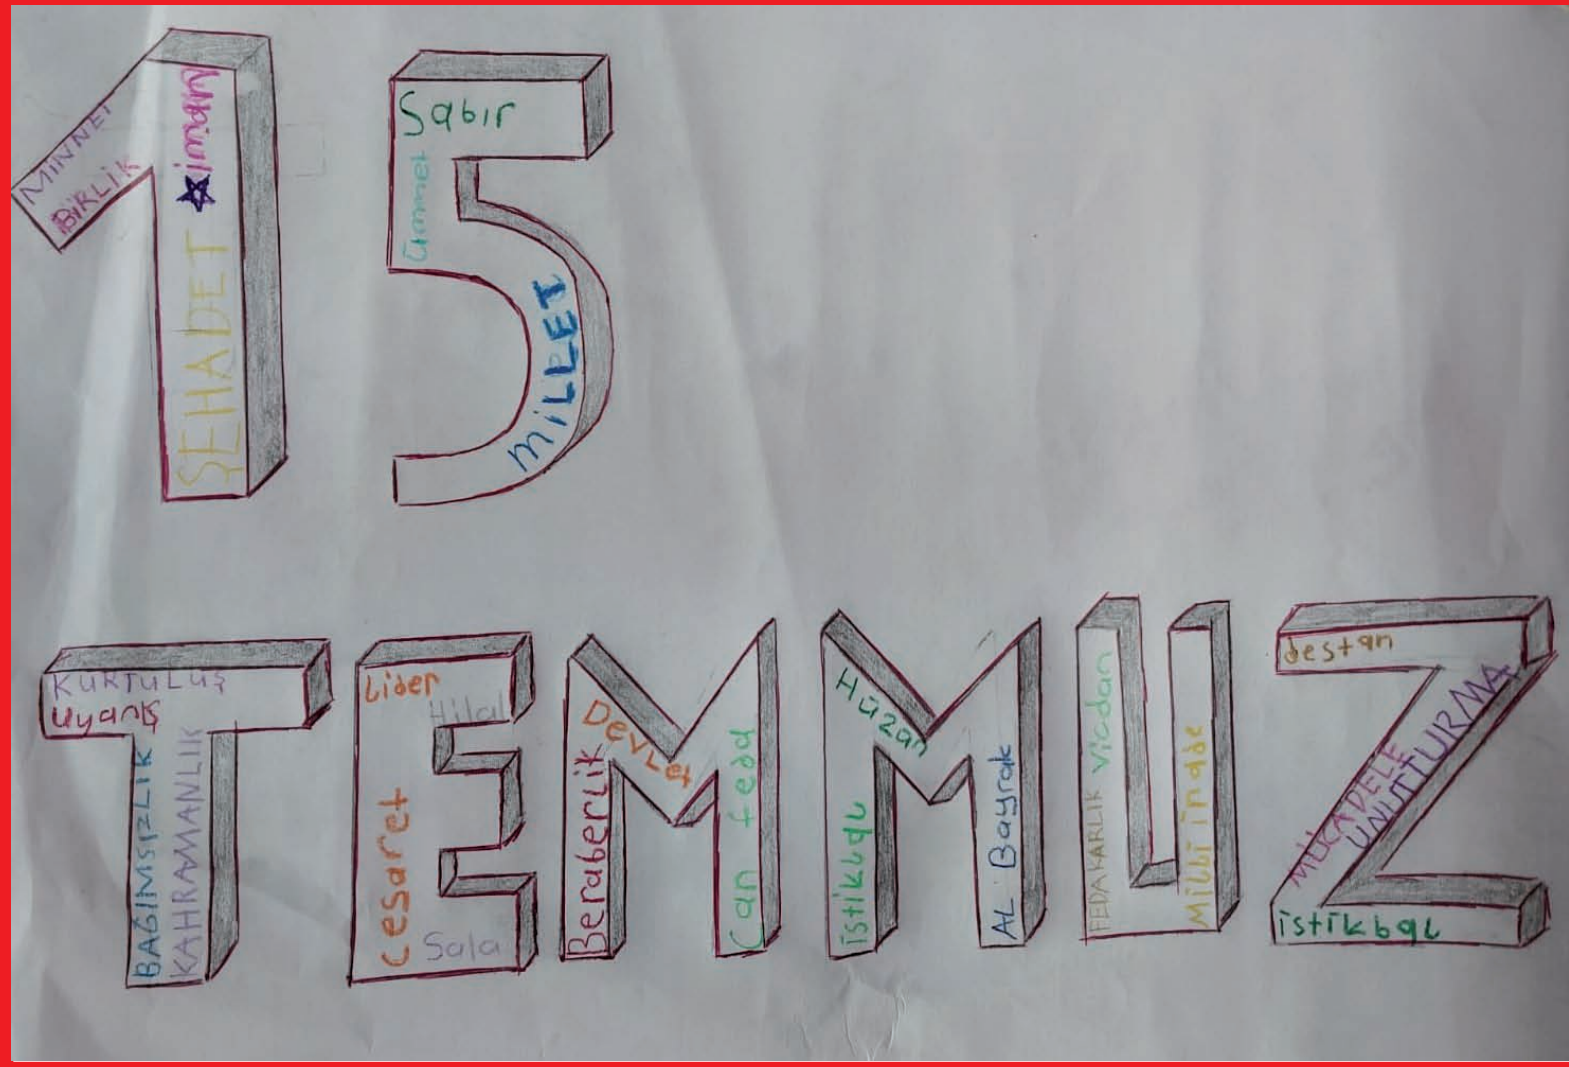 15
MİNNET
BİRLİK
iman
ŞEHADET
Sabır
ümmet
MİLLET
TEMMUZ
KURTULUŞ
uyanış
BAĞIMSIZLIK
KAHRAMANLIK
Lider
Hilal
Cesaret
Sala
Devlet
Beraberlik
Can feda
Hüzan
istikbal
AL Bayrak
FEDAKARLIK vicdan
Milli irade
destan
MÜCADELE
UNUTTURMA
istikbal